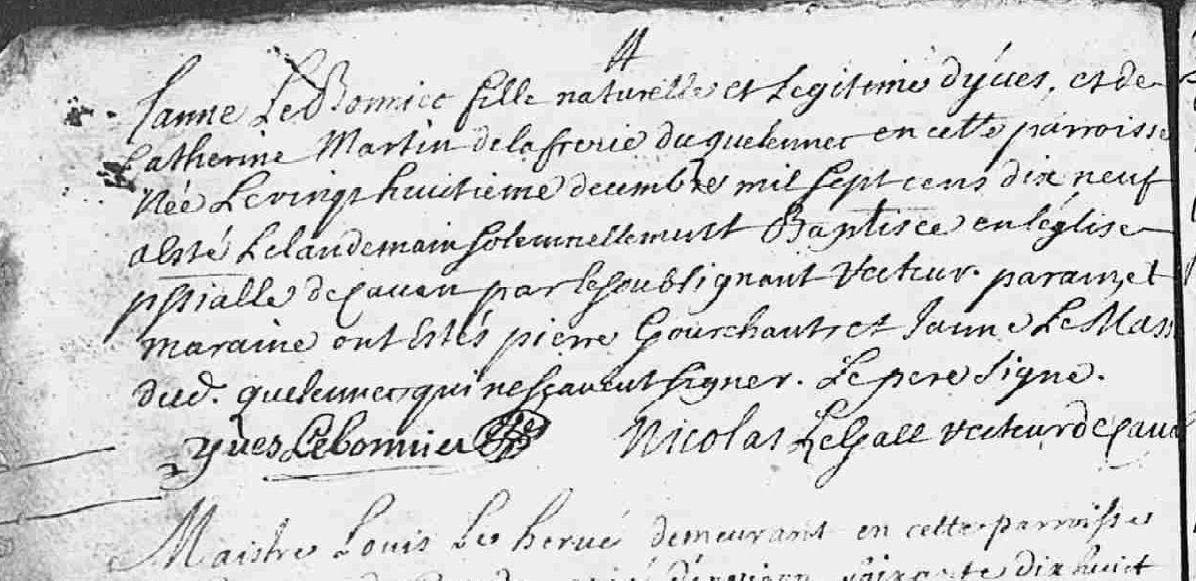 Janne Le Bonniec fille naturelle et Legitime d'yves, et de
Catherine Martin de la frerie du quelennec en cette parroisse
Née Le vingt huitieme decembre mil sept cens dix neuf
a Esté Le landemain solemnellement Baptisee en l'église
pssialle de Cavan par le soubsignant recteur. parain et
maraine ont Estés pierre Gourchant et Janne Le Mas
dud. quelennec qui ne sçavent signer. Le pere signe.
yves Lebonniec Nicolas LeGall recteur de Cavan
Maistre Louis Le hervé demeurant en cette parroisse
dix huict